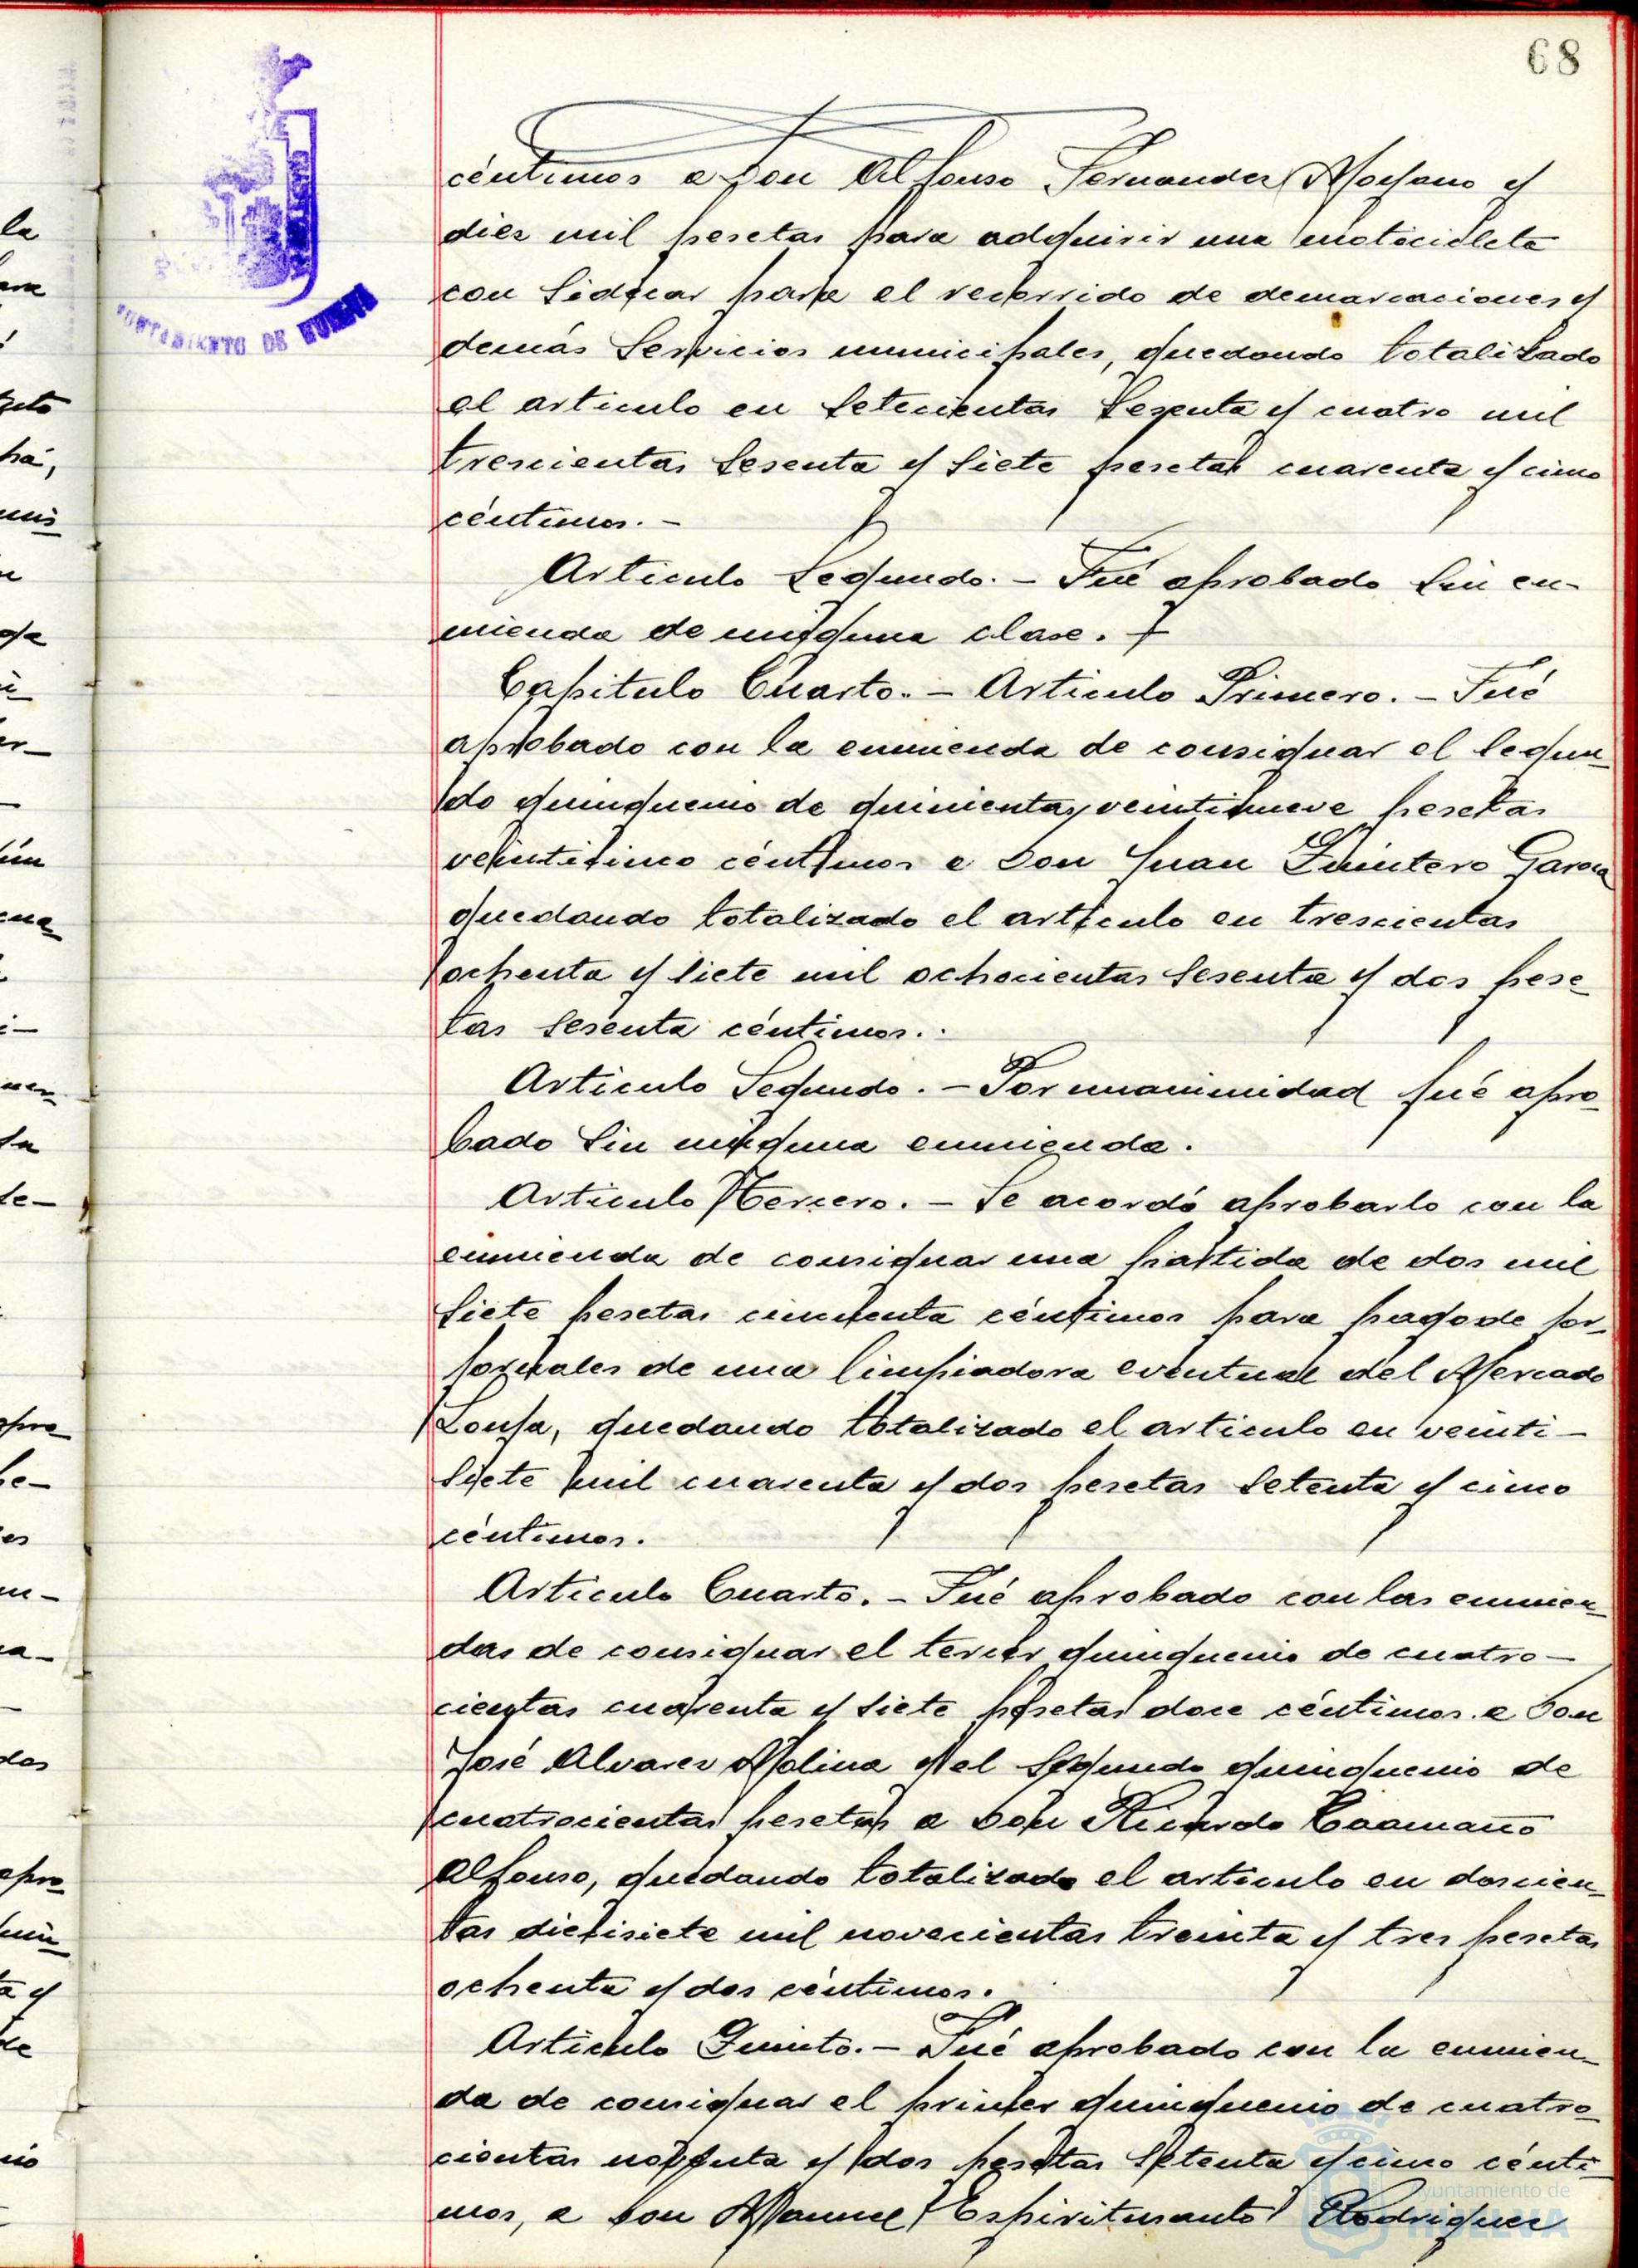 68
AYUNTAMIENTO DE HUELVA
céntimos a Don Alfonso Fernandez Moyano y
diez mil pesetas para adquirir una motocicleta
con Sidecar para el recorrido de demarcaciones y
demás Servicios municipales, quedando totalizado
el articulo en Setecientas Sesenta y cuatro mil
trescientas Sesenta y Siete pesetas cuarenta y cinco
céntimos. -
Articulo Segundo. - Fué aprobado Sin en-
mienda de ninguna clase. -
Capitulo Cuarto. - Articulo Primero. - Fué
aprobado con la enmienda de consignar el Segun-
do quinquenio de quinientas veintinueve pesetas
veinticinco céntimos a Don Juan Quintero Garcia
quedando totalizado el articulo en trescientas
ochenta y Siete mil ochocientas Sesenta y dos pese-
tas Sesenta céntimos.
Articulo Segundo. - Por unanimidad fué apro-
bado Sin ninguna enmienda.
Articulo Tercero. - Se acordó aprobarlo con la
enmienda de consignar una partida de dos mil
Siete pesetas cincuenta céntimos para pago de jor-
jornales de una limpiadora eventual del Mercado
Lonja, quedando totalizado el articulo en veinti-
Siete mil cuarenta y dos pesetas Setenta y cinco
céntimos.
Articulo Cuarto. - Fué aprobado con las enmien-
das de consignar el tercer quinquenio de cuatro-
cientas cuarenta y Siete pesetas doce céntimos a Don
José Alvarez Molina y el Segundo quinquenio de
cuatrocientas pesetas a Don Ricardo Caamaño
Alfonso, quedando totalizado el articulo en doscien-
tas diecisiete mil novecientas treinta y tres pesetas
ochenta y dos céntimos.
Articulo Quinto. - Fué aprobado con la enmien-
da de consignar el primer quinquenio de cuatro-
cientas noventa y dos pesetas Setenta y cinco cénti-
mos, a Don Manuel Espiritusanto Rodriguez
Ayuntamiento de
HUELVA